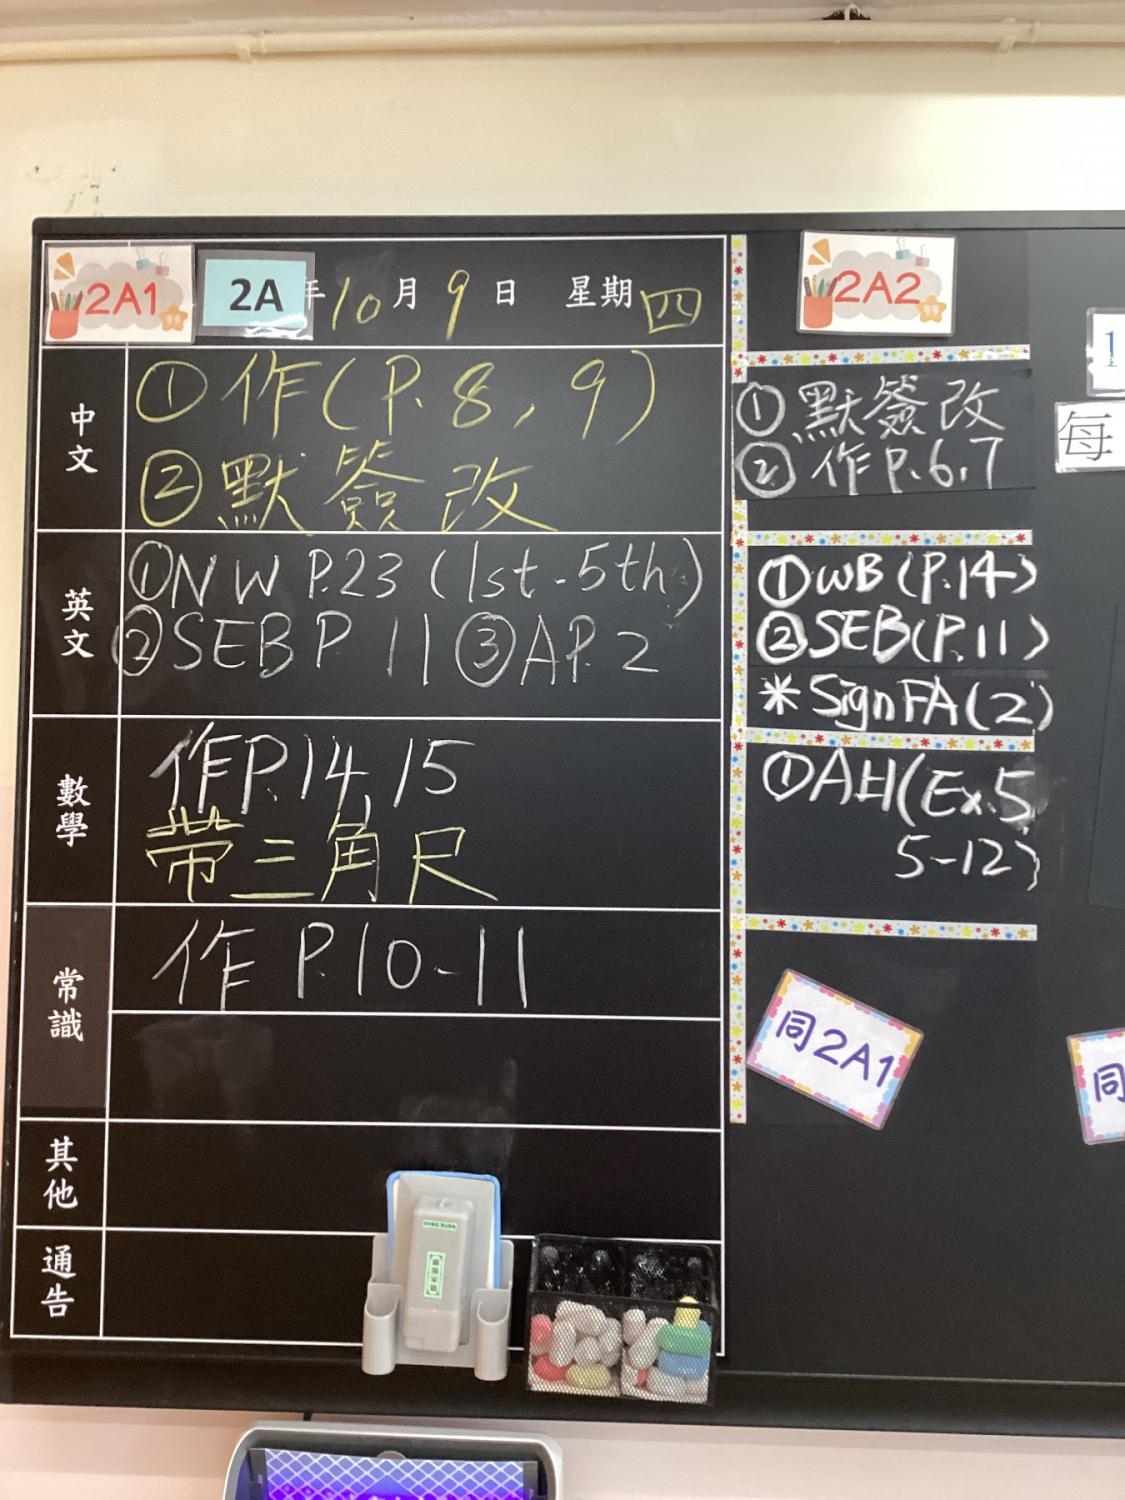 2A1
2A
年10月9日 星期四
2A2
中文
①作(P.8, 9)
②默簽改
①默簽改
②作P.6,7
每
英文
①NW P.23 (1st-5th)
②SEB P 11 ③A P.2
①WB(P.14)
②SEB(P.11)
*Sign FA(2)
數學
作P.14,15
帶三角尺
①AH(Ex.5
5-12)
常識
作 P.10-11
同2A1
同
其他
通告